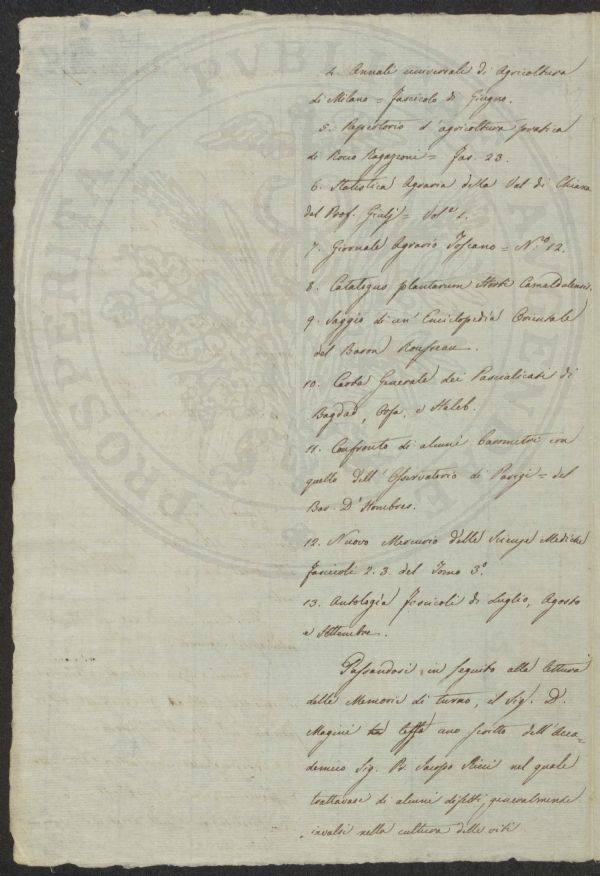 4. Annali universali di Agricoltura
di Milano = fascicolo di Giugno.
5. Repertorio d'agricoltura pratica
di Rocco Ragazzoni = fas. 23.
6. Statistica Agraria della Val di Chiana
del Prof. Giulj = Vol.e 1.
7. Giornale Agrario Toscano = N.ro 12.
8. Catalogus plantarum Horti Camaldulensis.
9. Saggio di un' Enciclopedia Orientale
del Baron Rousseau.
10. Carta Generale dei Pascialicati di
Bagdad, Orfa, e Haleb.
11. Confronto di alcuni barometri con
quello dell'Osservatorio di Parigi = del
Bar. D'Hombres.
12. Nuovo Mercurio delle Scienze Mediche
fascicoli 2. 3. del Tomo 3º.
13. Antologia fascicoli di Luglio, Agosto
e Settembre.
Passandosi in seguito alla lettura
delle Memorie di turno, il Sig. D.
Magini ha lesse uno scritto dell'Acca-
demico Sig. Jacopo Ricci nel quale
trattavasi di alcuni difetti generalmente
invalsi nella cultura delle viti
PROSPERITATI PUBLICAE